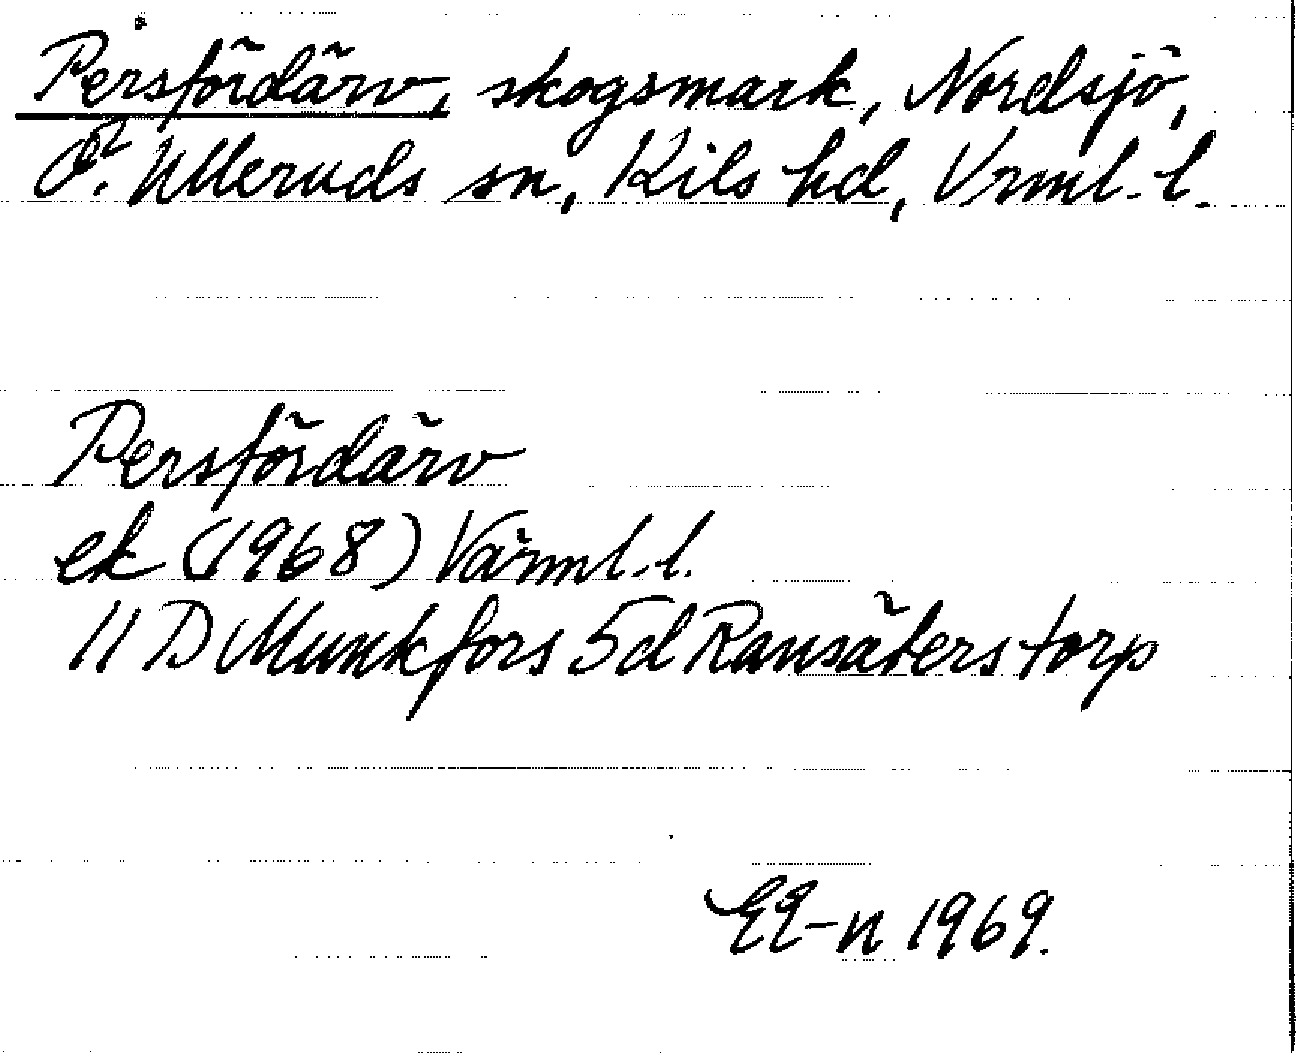 Persfördärv, skogsmark, Nordsjö,
Ö. Ulleruds sn, Kils hd, Vrml. l.
Persfördärv
ek (1968) Värml. l.
11 D Munkfors 5d Ransäters torp
1969.